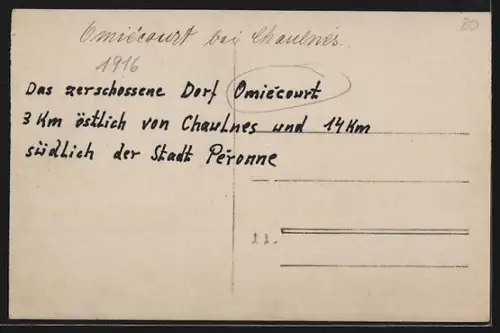 Omiécourt bei Chaulnes.
1916
Das zerschossene Dorf Omiécourt
3 Km östlich von Chaulnes und 14 Km
südlich der Stadt Péronne
22.